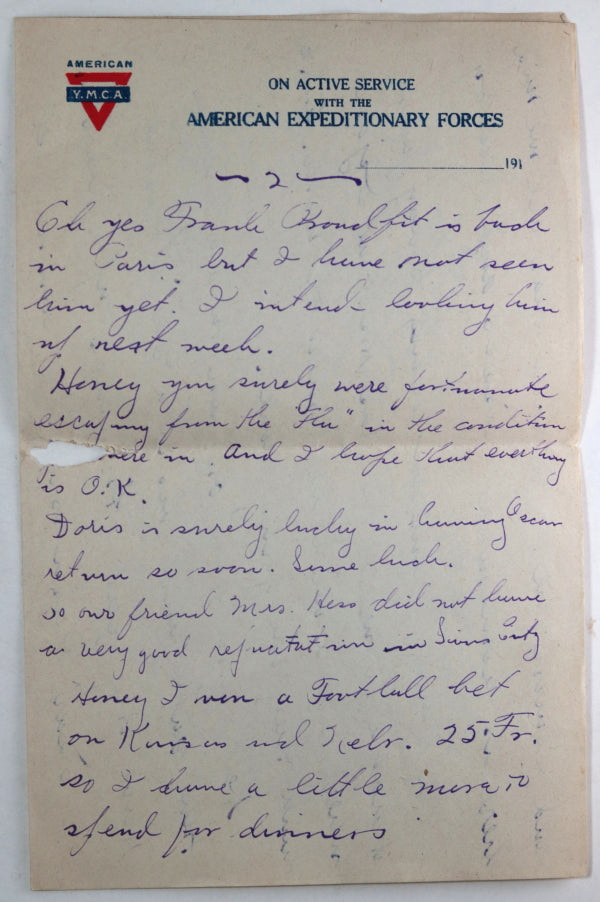 AMERICAN
Y.M.C.A.
ON ACTIVE SERVICE
WITH THE
AMERICAN EXPEDITIONARY FORCES
191
— 2 —
Oh yes Frank Broudfit is back
in Paris but I have not seen
him yet. I intend looking him
up next week.
Honey you surely were fortunate
escaping from the "Flu" in the condition
were in. And I hope that everthing
is O.K.
Doris is surely lucky in having Oscar
return so soon. Some luck.
So our friend Mrs. Hess did not have
a very good reputation in Sioux City
Honey I won a Football bet
on Kansas and Nebr. 25 Fr.
so I have a little more to
spend for dinners